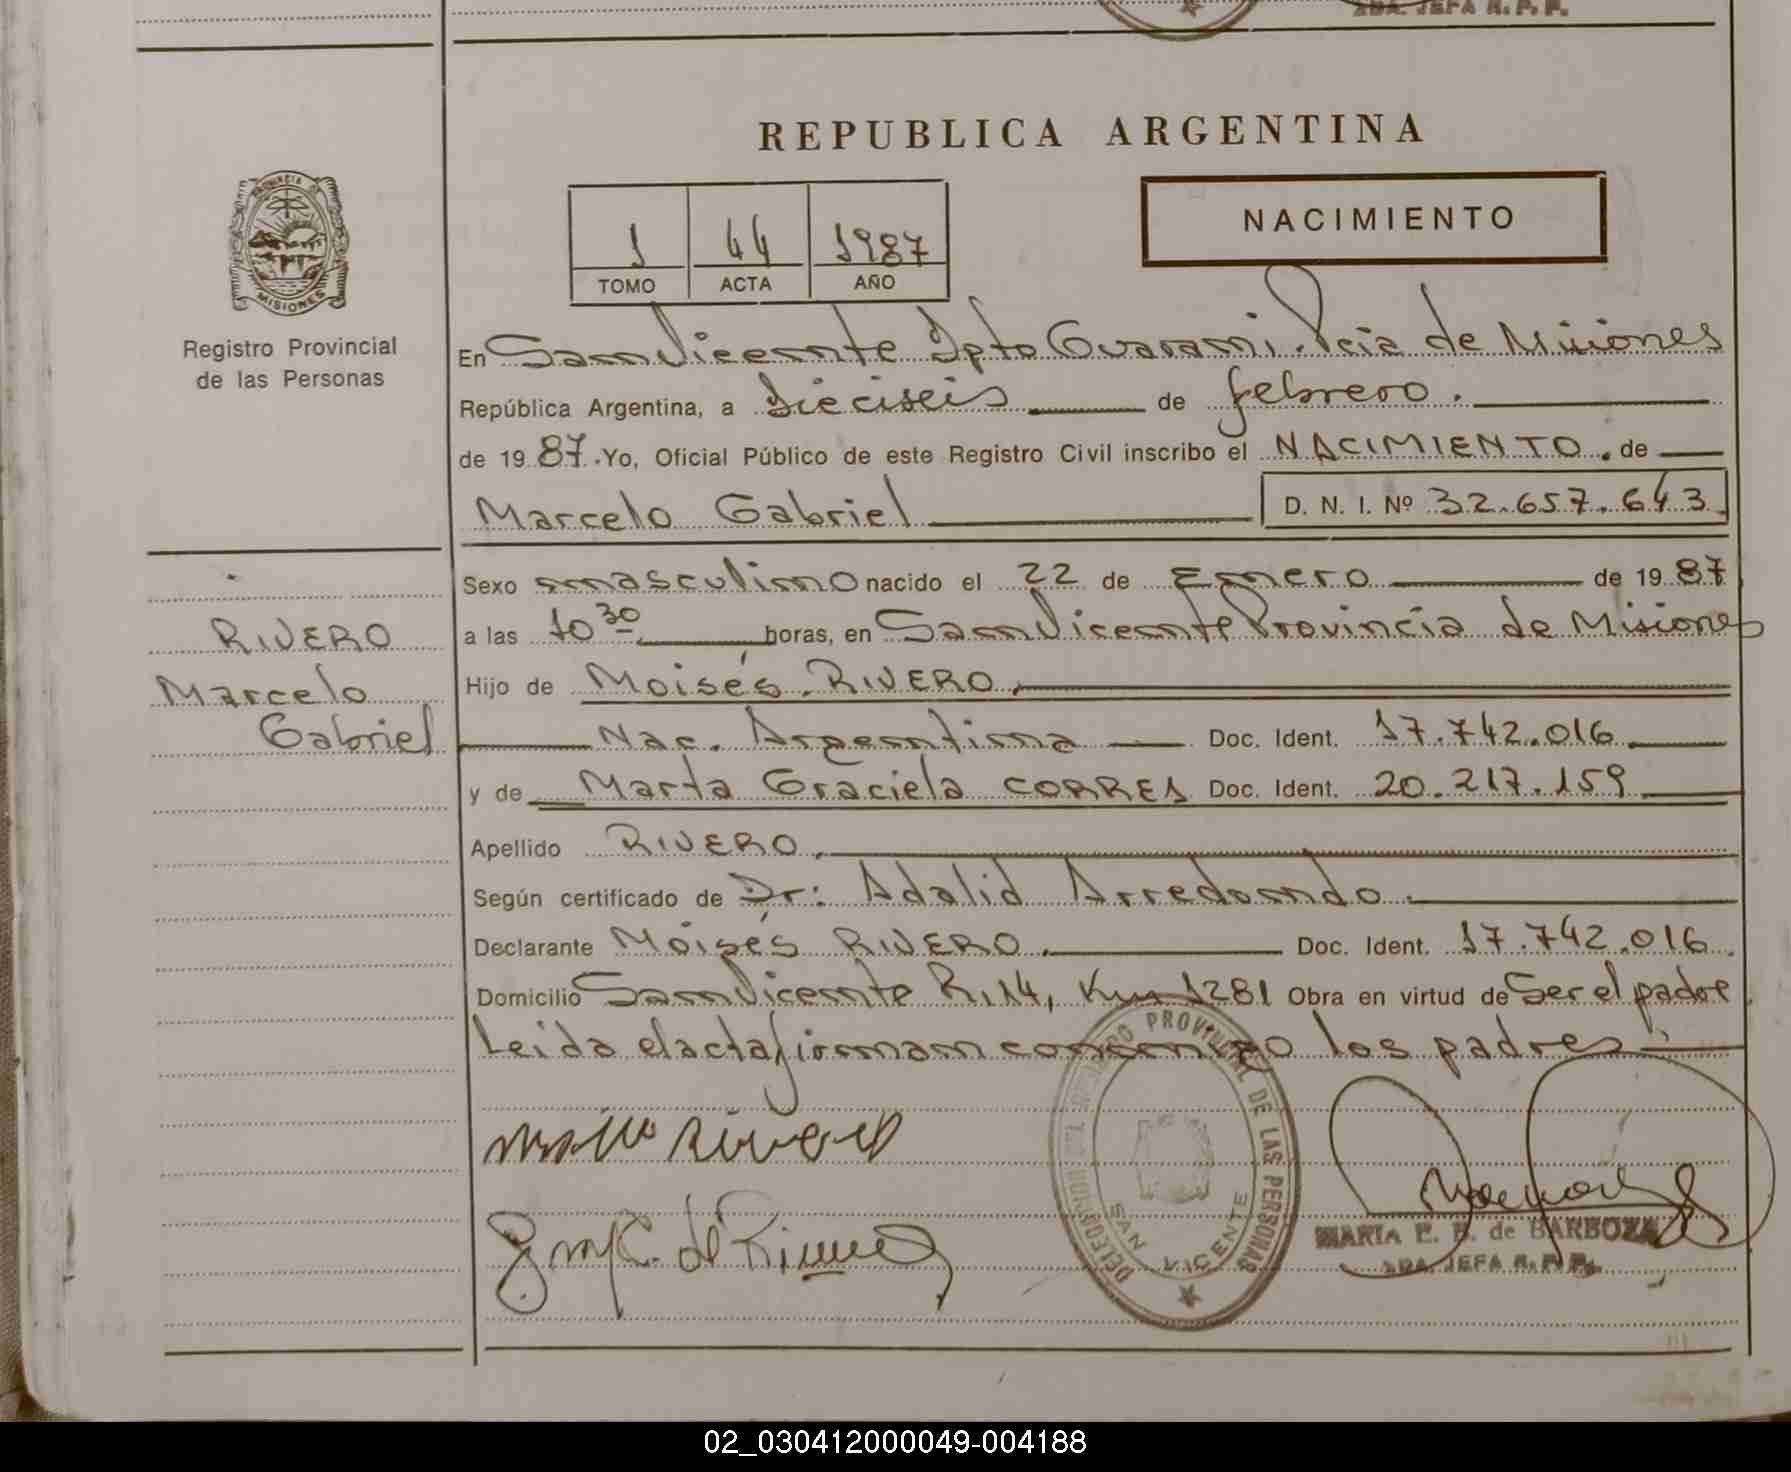 2DA. JEFA R. P. P.
REPUBLICA ARGENTINA
PROVINCIA DE MISIONES
Registro Provincial
de las Personas
1 44 1987
TOMO ACTA AÑO
NACIMIENTO
En San Vicente Dpto Guarani. Pcia de Misiones
República Argentina, a Dieciseis de febrero.
de 1987. Yo, Oficial Público de este Registro Civil inscribo el NACIMIENTO. de
Marcelo Gabriel D. N. I. Nº 32.657.643
Sexo masculino nacido el 22 de Enero de 1987
a las 10 30 horas, en San Vicente Provincia de Misiones
Hijo de Moisés. RIVERO.
Nac. Argentina Doc. Ident. 17.742.016
y de Marta Graciela CORRES Doc. Ident. 20.217.159
Apellido RIVERO.
Según certificado de Dr: Adalid Arredondo.
Declarante Moisés RIVERO. Doc. Ident. 17.742.016.
Domicilio San Vicente R.14, Km 1281 Obra en virtud de Ser el padre
Leida el acta firman conmigo los padres
RIVERO
Marcelo
Gabriel
PROVINCIAL DE LAS PERSONAS
SAN VICENTE
MARIA E. B. de BARBOZA
2DA. JEFA R. P. P.
02_030412000049-004188